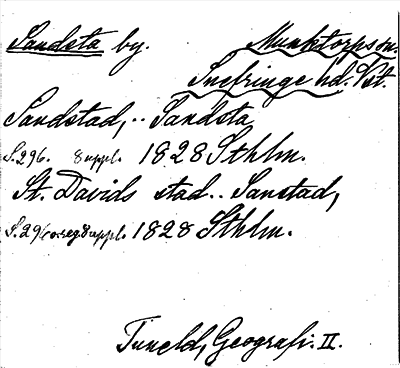 Sandsta by. Munktorps sn.
Snefringe hd. Vst.
Sandstad, .. Sandsta
S. 296. 8 uppl. 1828 Sthlm.
St. Davids stad .. Sanstad,
S. 296 o. reg 8 uppl. 1828 Sthlm.
Tuneld, Geografi. II.